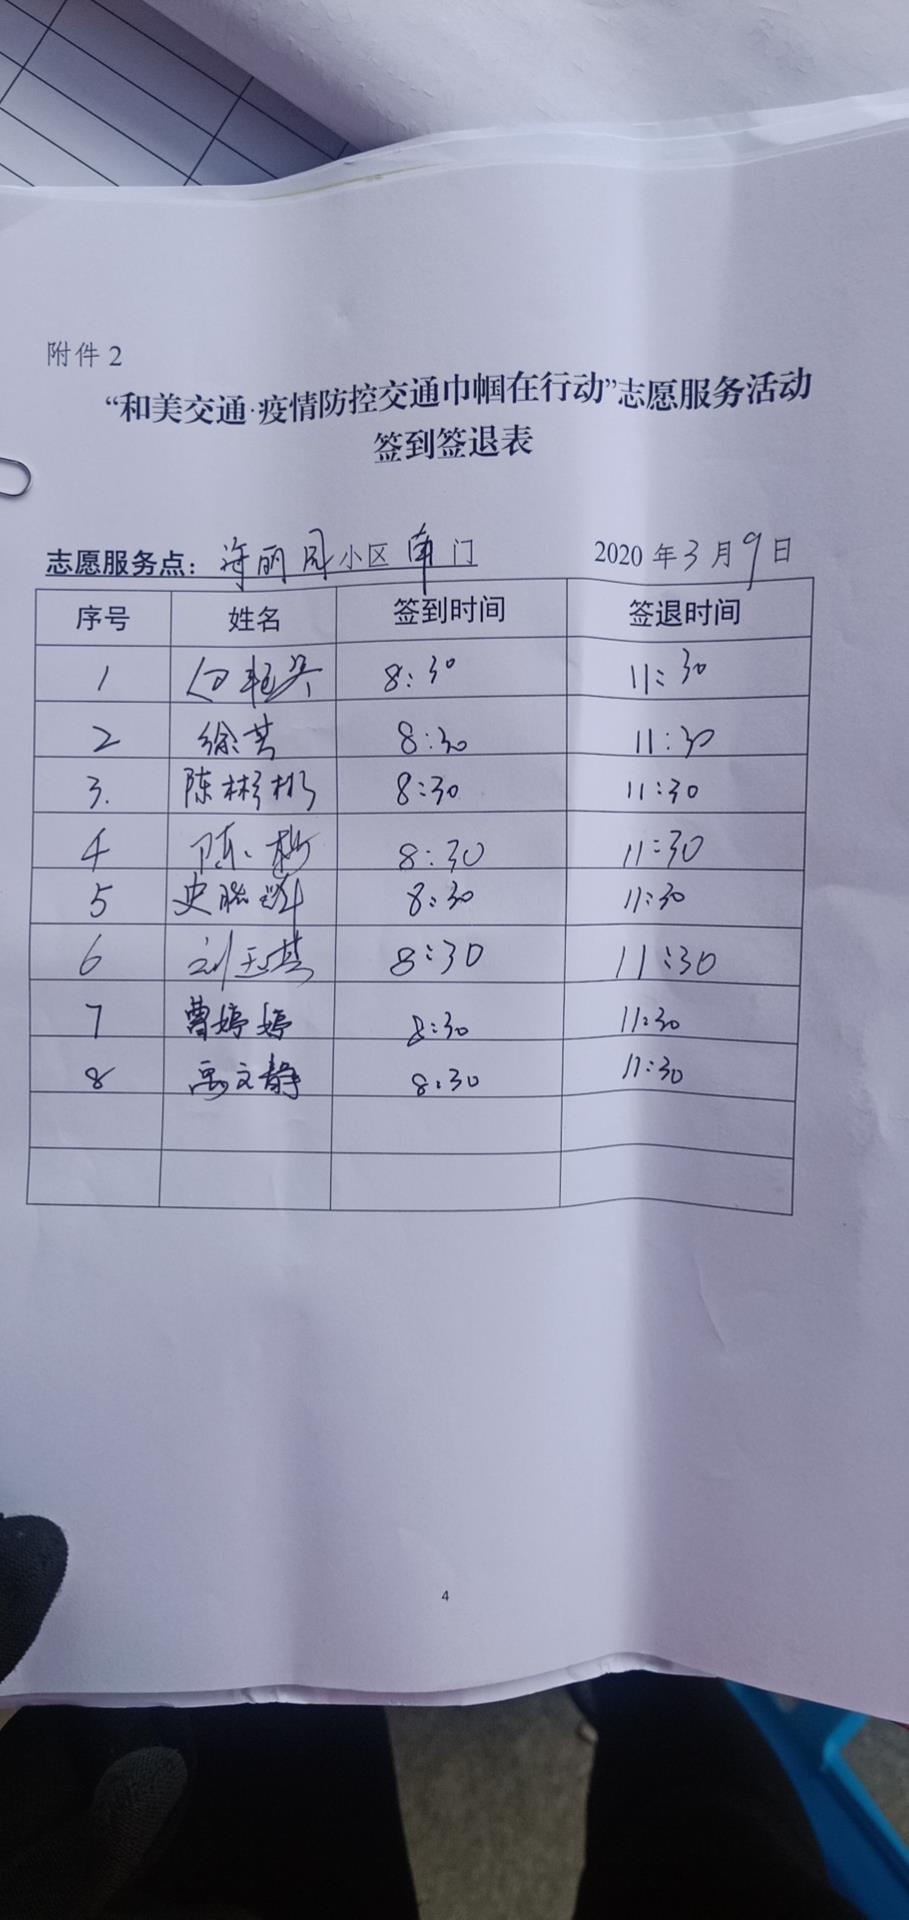 附件2
“和美交通·疫情防控交通巾帼在行动”志愿服务活动
签到签退表
志愿服务点：海丽园小区南门 2020年3月9日
序号 姓名 签到时间 签退时间
1 8:30 11:30
2 徐芸 8:30 11:30
3. 陈彬彬 8:30 11:30
4 陈 8:30 11:30
5 史 8:30 11:30
6 刘玉琪 8:30 11:30
7 曹婷婷 8:30 11:30
8 禹文静 8:30 11:30
4